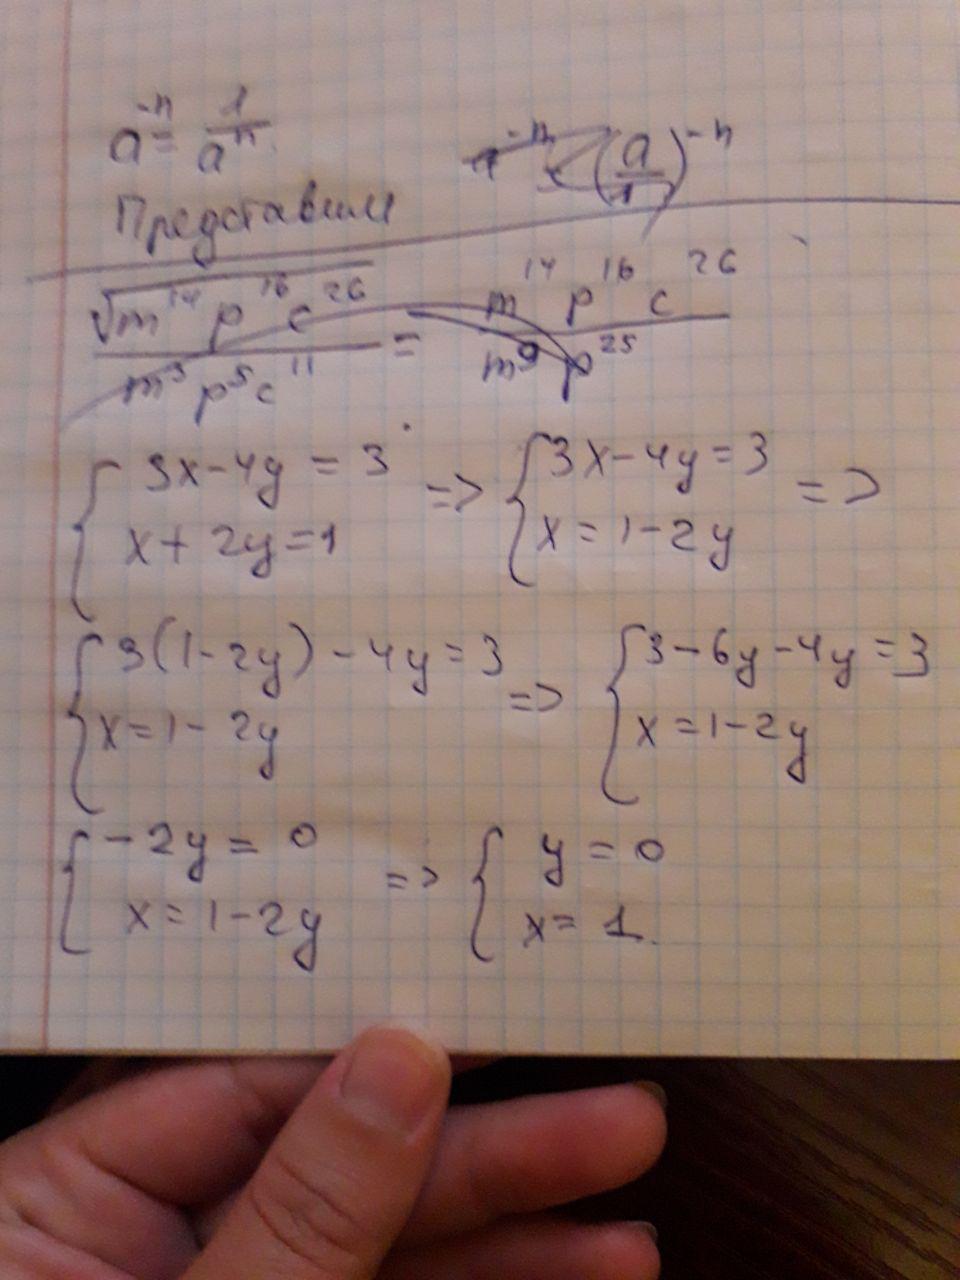 a⁻ⁿ = 1/aⁿ (a/1)⁻ⁿ
Представим
√(m¹⁴p¹⁶c²⁶)/(m³p⁵c¹¹) = m¹⁴p¹⁶c²⁶/(m⁹p²⁵)
{3x-4y=3 => {3x-4y=3 =>
{x+2y=1 {x=1-2y
{3(1-2y)-4y=3 => {3-6y-4y=3
{x=1-2y {x=1-2y
{-2y=0 => {y=0
{x=1-2y {x=1.